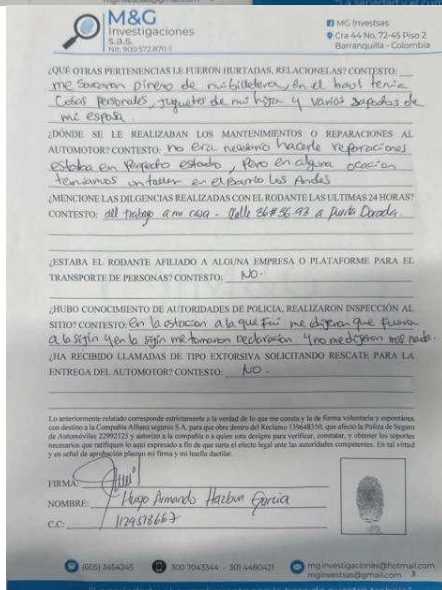 M&G
Investigaciones
S.A.S.
Nit: 900.572.870-1
MG Investsas
Cra 44 No. 72-45 Piso 2
Barranquilla - Colombia
¿QUÉ OTRAS PERTENENCIAS LE FUERON HURTADAS, RELACIONELAS? CONTESTO:
me sacaron Dinero de mi billetera, en el baul tenia
Cosas personales, juguetes de mi hija y varios zapatos de
mi esposa.
¿DÓNDE SE LE REALIZABAN LOS MANTENIMIENTOS O REPARACIONES AL
AUTOMOTOR? CONTESTO: no era necesario hacerle reparaciones
estaba en Perfecto estado, Pero en alguna ocacion
teniamos un taller en el Barrio Los Andes
¿MENCIONE LAS DILGENCIAS REALIZADAS CON EL RODANTE LAS ULTIMAS 24 HORAS?
CONTESTO: del trabajo a mi casa - Calle 36#36-93 a Punta Dorada.
¿ESTABA EL RODANTE AFILIADO A ALGUNA EMPRESA O PLATAFORME PARA EL
TRANSPORTE DE PERSONAS? CONTESTO: NO.
¿HUBO CONOCIMIENTO DE AUTORIDADES DE POLICIA, REALIZARON INSPECCIÓN AL
SITIO? CONTESTO: en la estacion a la que Fui me dijeron que fuera
a la sijin y en la sijin me tomaron declaracion y no me dijeron mas nada.
¿HA RECIBIDO LLAMADAS DE TIPO EXTORSIVA SOLICITANDO RESCATE PARA LA
ENTREGA DEL AUTOMOTOR? CONTESTO: NO.
Lo anteriormente relatado corresponde estrictamente a la verdad de lo que me consta y la de forma voluntaria y espontánea
con destino a la Compañía Allianz seguros S.A. para que obre dentro del Reclamo 139648350, que afecto la Póliza de Seguro
de Automóviles 22992125 y autorizo a la compañía o a quien esta designe para verificar, constatar, y obtener los soportes
necesarios que ratifiquen lo aquí expresado a fin de que surta el efecto legal ante las autoridades competentes. En tal virtud
y en señal de aprobación plasmo mi firma y mi huella dactilar.
FIRMA:
NOMBRE: Hugo Armando Hazbun Garcia
C.C: 1129578667
(605) 3454245
300 7043344 - 301 4480421
mg.investigaciones@hotmail.com
mginvestsas@gmail.com 3